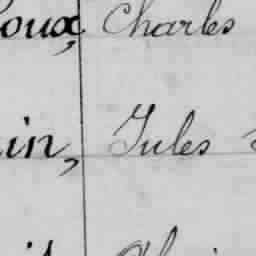 oux, Charles
in, Jules